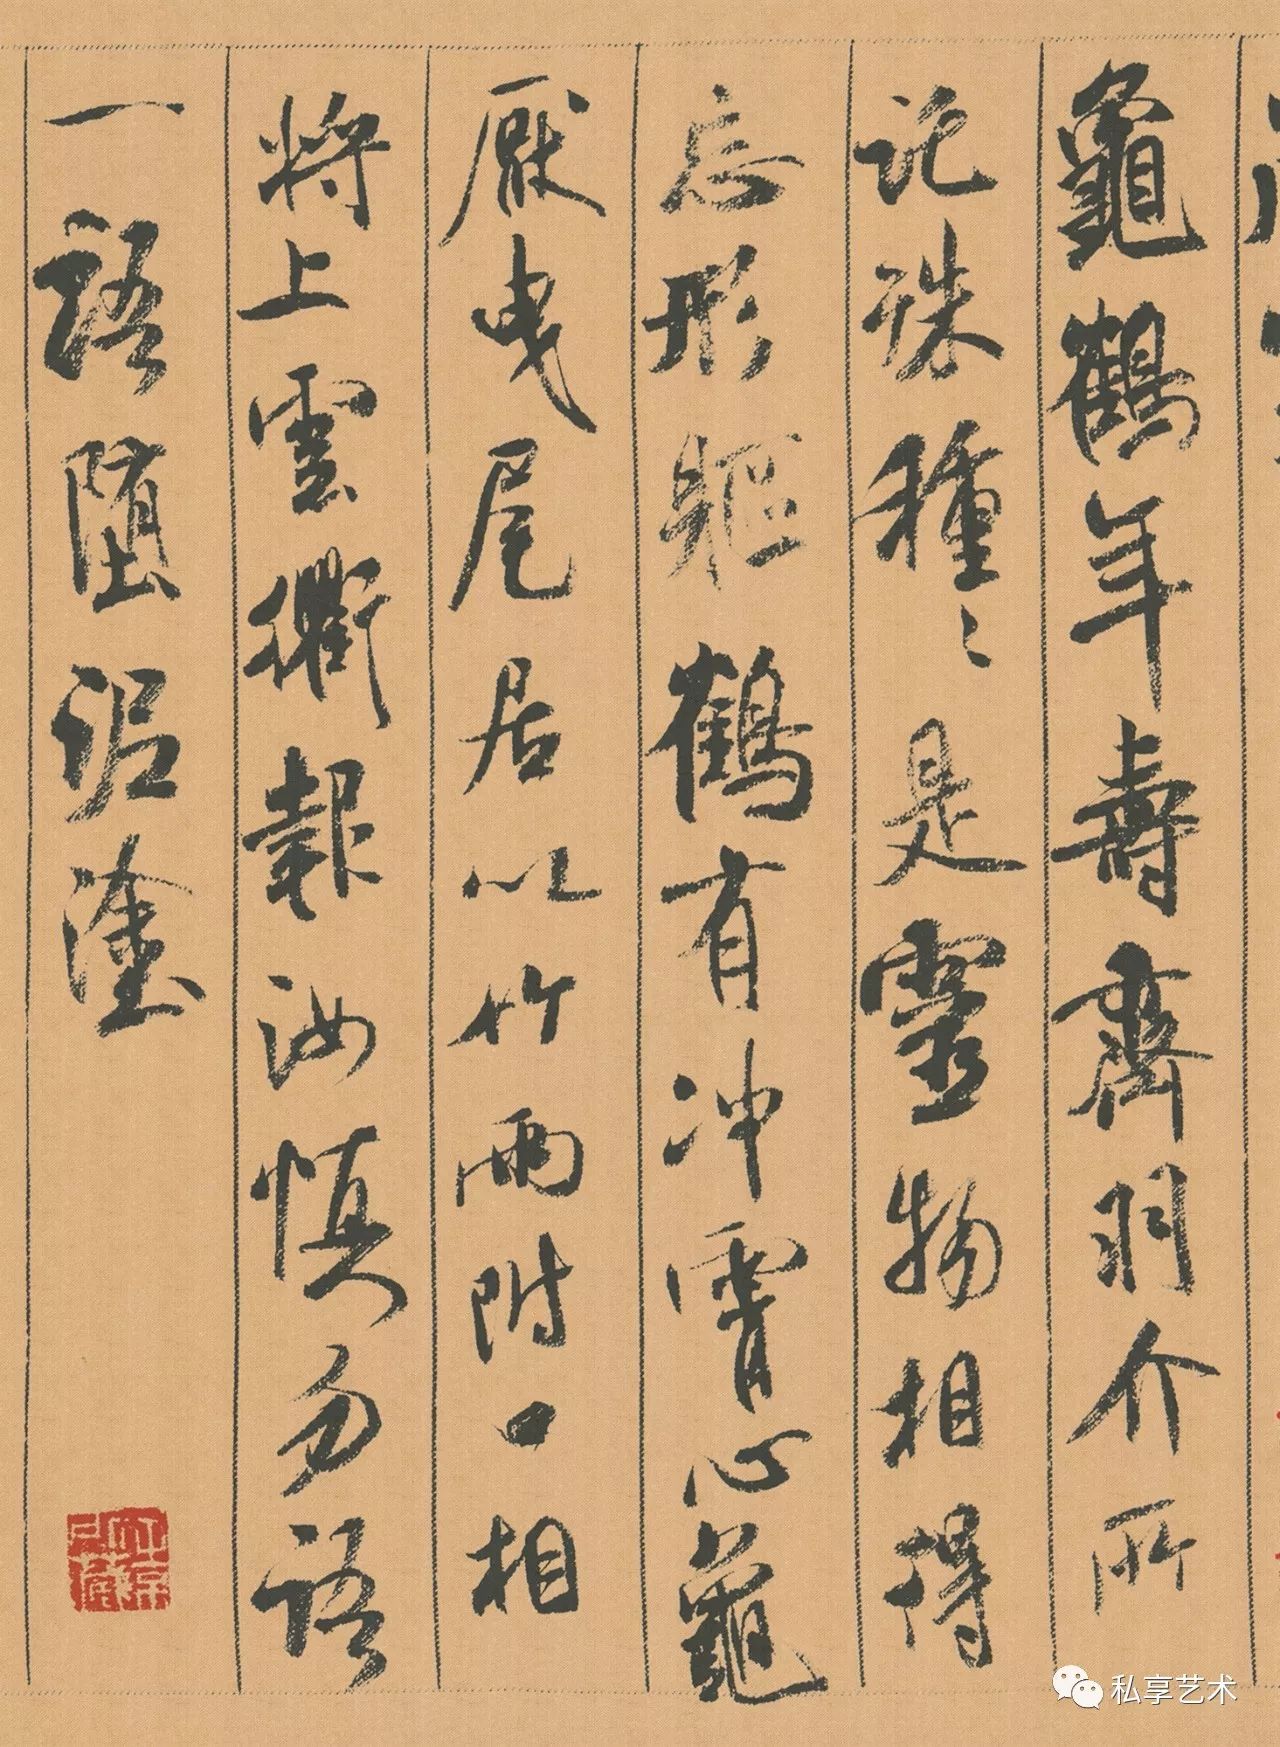 龜鶴年壽齊羽介所
記殊種〻是靈物相得
忘形軀鶴有冲霄心龜
厭曳尾居以竹兩附口相
將上雲衢報汝慎勿語
一語墮泥塗
私享艺术